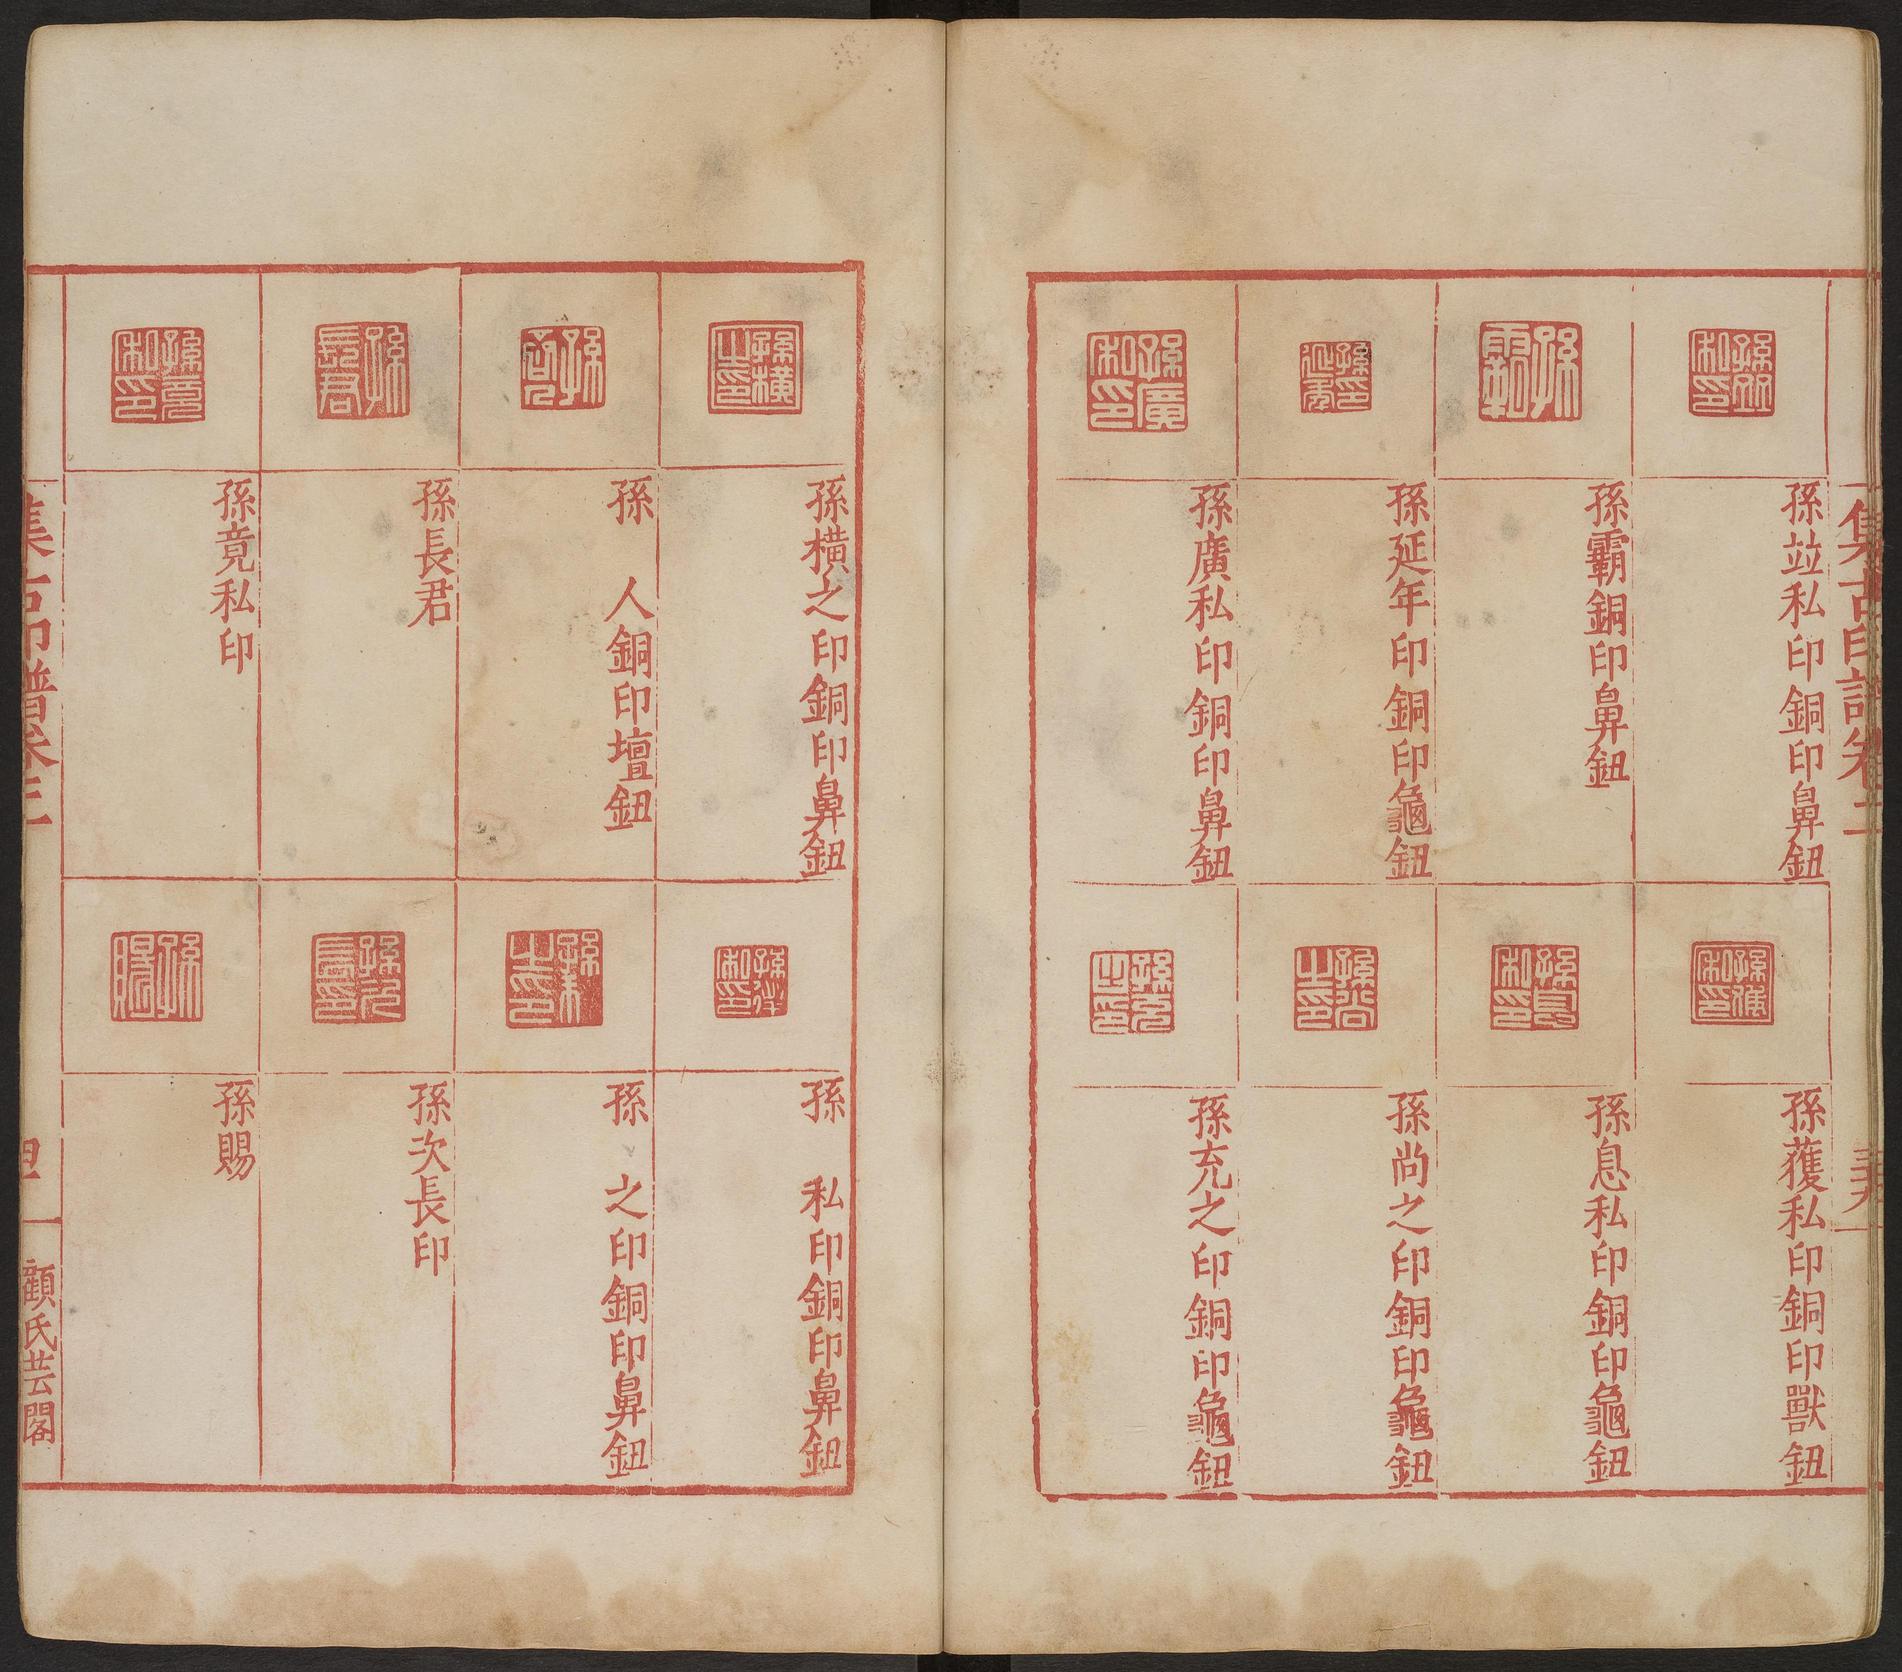 集古印譜卷二
孫竝私印銅印鼻鈕
孫霸銅印鼻鈕
孫延年印銅印龜鈕
孫廣私印銅印鼻鈕
孫蒦私印銅印獸鈕
孫息私印銅印龜鈕
孫尚之印銅印龜鈕
孫充之印銅印龜鈕
孫橫之印銅印鼻鈕
孫 人銅印壇鈕
孫長君
孫竟私印
孫 私印銅印鼻鈕
孫 之印銅印鼻鈕
孫次長印
孫賜
集古印譜卷二
顧氏芸閣